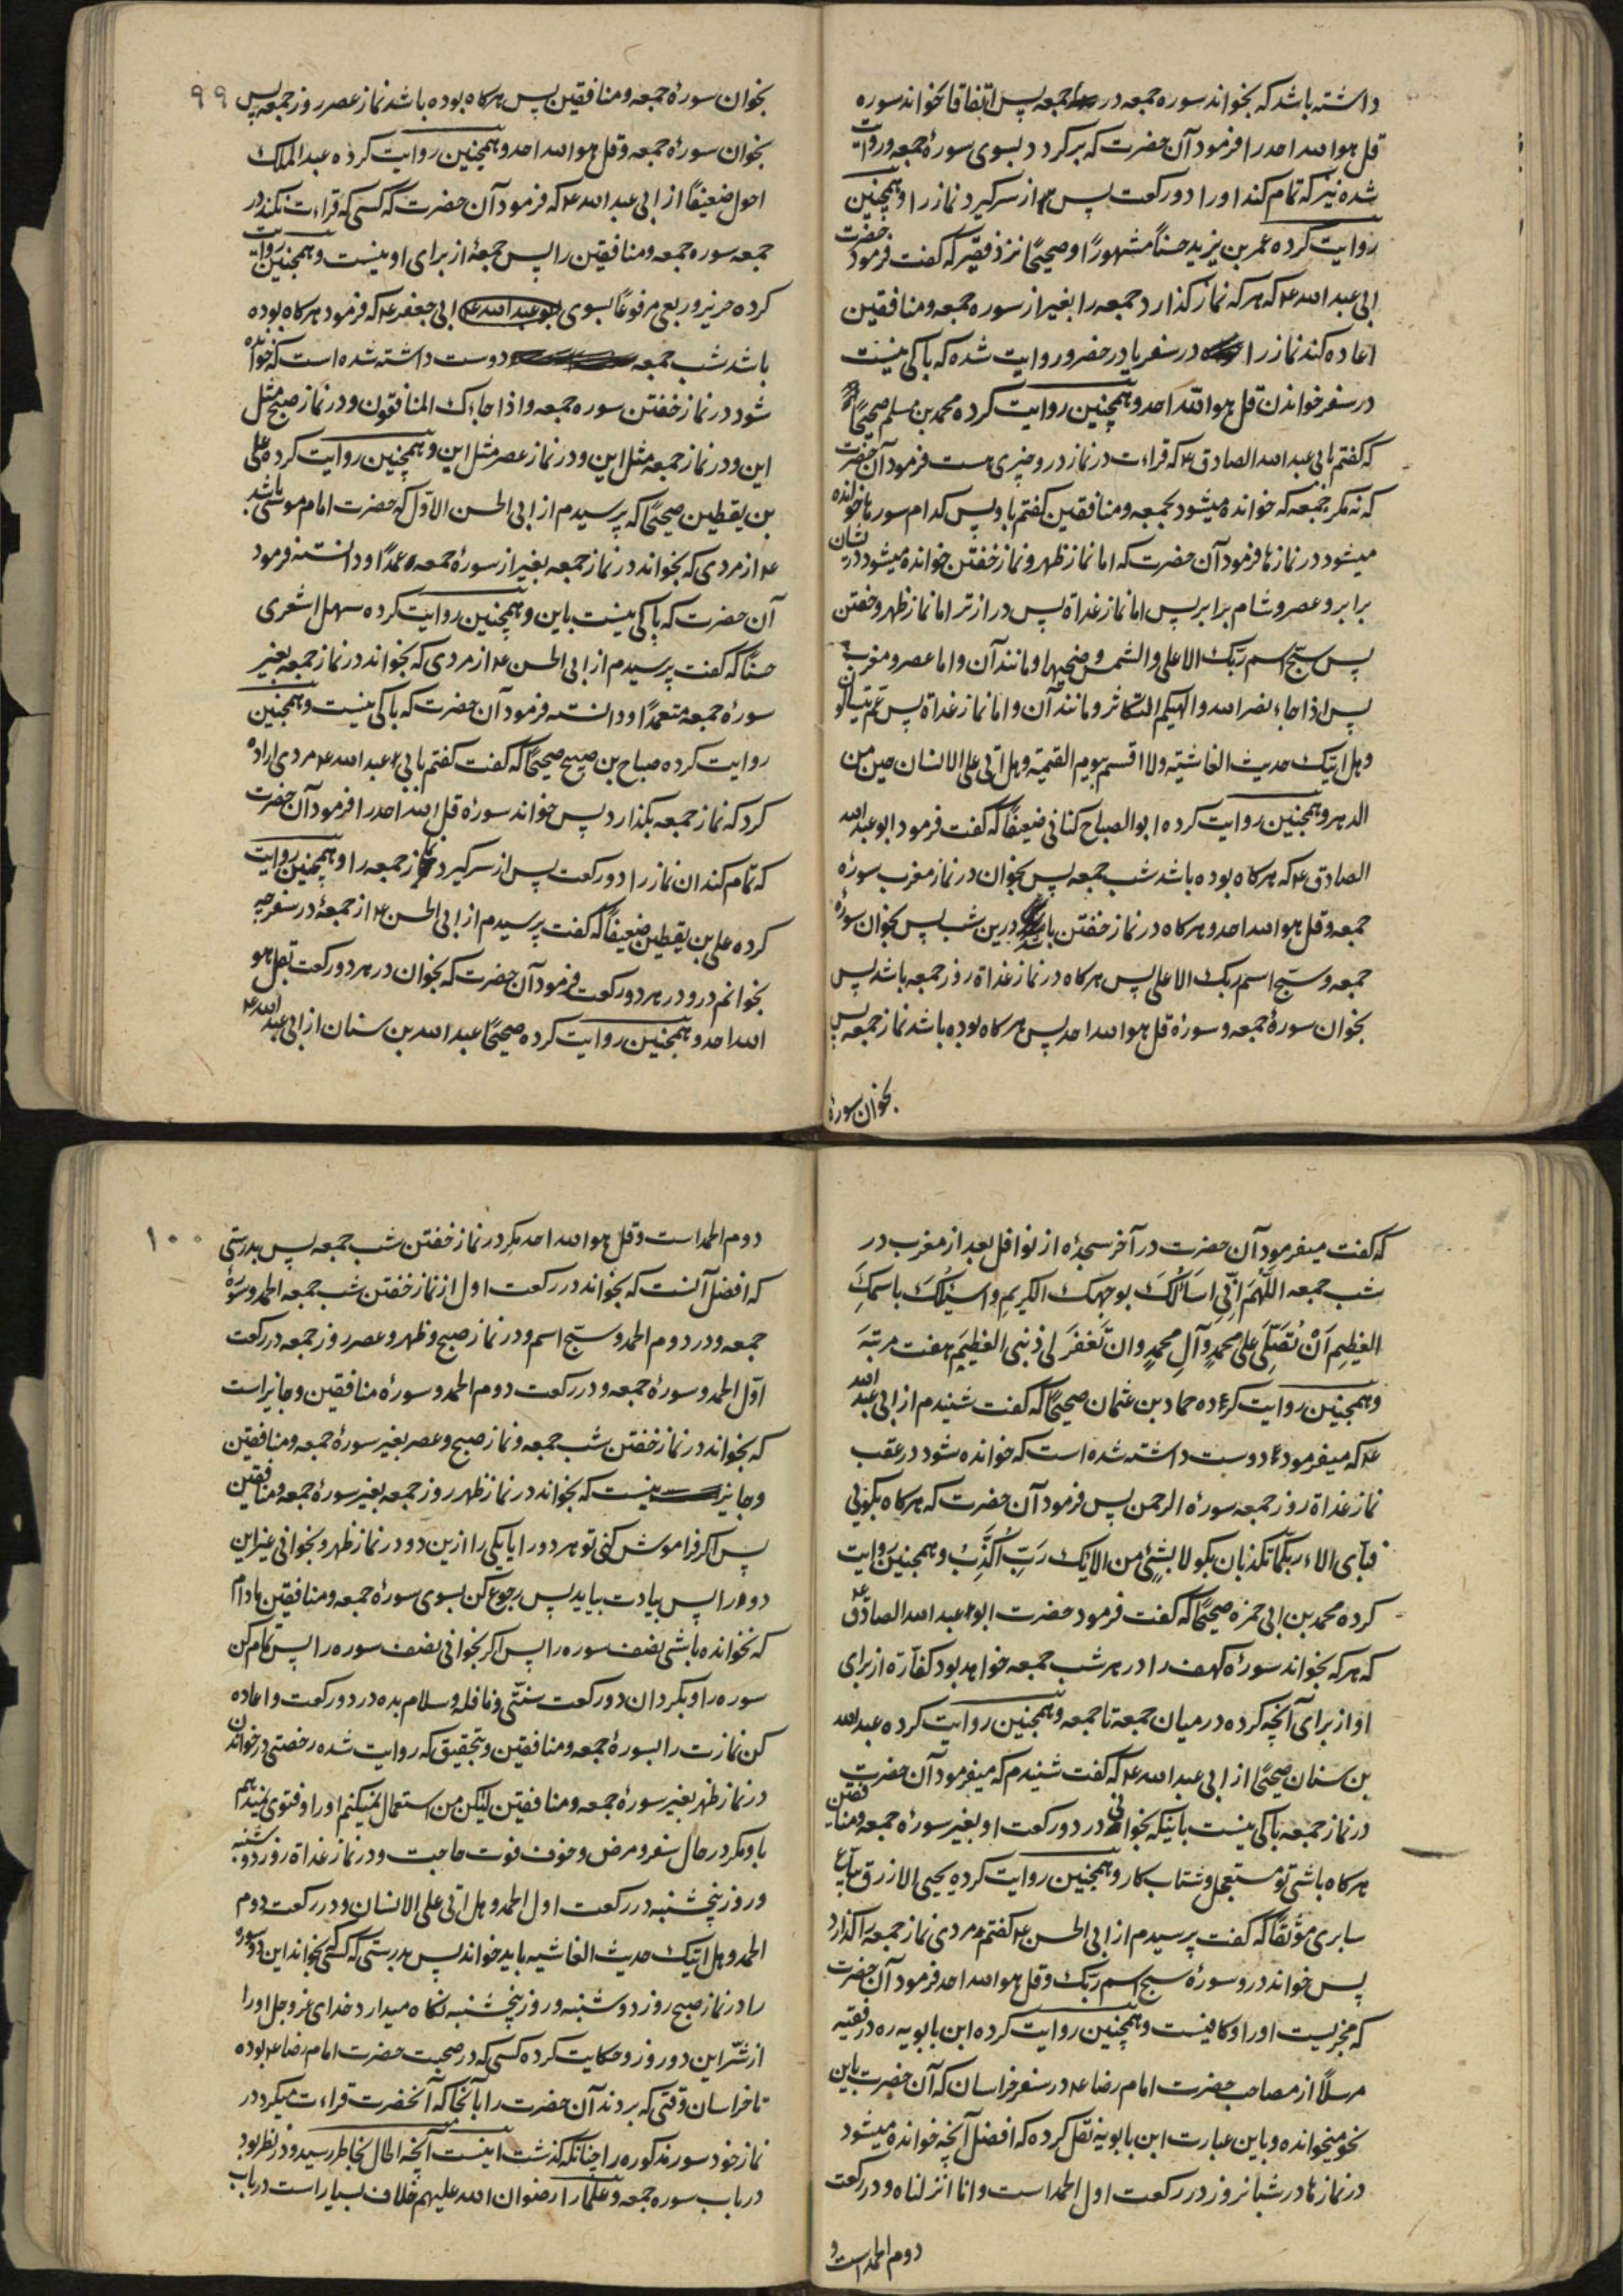 داشته باشد که بخواند سوره جمعه در جمعه پس اتفاقا بخواند سوره
قل هو الله احد را فرمود آن حضرت که برکردد بسوی سورهٔ جمعه وروایت
شده نیز که تمام کند اورا دو رکعت پس از سر کیرد نماز را وهمچنین
روایت کرده عمر بن یزید حسنًا مشهورًا وصحیحًا نزد فقیر که کفت فرمود حضرت
ابی عبد الله ع که هر که نماز کذارد جمعه را بغیر از سوره جمعه ومنافقین
اعاده کند نماز را در سفر یا در حضر وروایت شده که باکی نیست
در سفر خواندن قل هو الله احد وهمچنین روایت کرده محمد بن مسلم صحیحًا
که کفتم بابی عبد الله الصادق ع که قراءت در نماز در وچیزی هست فرمود آن حضرت
که نه مکر جمعه که خوانده میشود بجمعه ومنافقین کفتم باو پس کدام سورها خوانده
میشود در نمازها فرمود آن حضرت که اما نماز ظهر ونماز خفتن خوانده میشود در یشان
برابر وعصر وشام برابر پس اما نماز غداة پس درازتر اما نماز ظهر وخفتن
پس سبح اسم ربک الاعلی والشمس وضحیها ومانند آن واما عصر ومغرب
پس اذا جاء نصر الله والهیکم التکاثر ومانند آن واما نماز غداة پس عم یتسالون
وهل اتیک حدیث الغاشیة ولا اقسم بیوم القیمة وهل اتی علی الانسان حین من
الدهر وهمچنین روایت کرده ابو الصباح کنانی ضعیفًا که کفت فرمود ابو عبد الله
الصادق ع که هرکاه بوده باشد شب جمعه پس بخوان در نماز مغرب سورهٔ
جمعه وقل هو الله احد وهرکاه در نماز خفتن باشد درین شب پس بخوان سورهٔ
جمعه وسبح اسم ربک الاعلی پس هرکاه در نماز غداة روز جمعه باشد پس
بخوان سورهٔ جمعه وسورهٔ قل هو الله احد پس هرکاه بوده باشد نماز جمعه پس
بخوان سورهٔ
۹۹
بخوان سورهٔ جمعه ومنافقین پس هرکاه بوده باشد نماز عصر روز جمعه پس
بخوان سورهٔ جمعه وقل هو الله احد وهمچنین روایت کرده عبد الملک
احول ضعیفًا از ابی عبد الله ع که فرمود آن حضرت که کسی که قراءت نکند در
جمعه سوره جمعه ومنافقین را پس جمعهٔ از برای او نیست وهمچنین روایت
کرده حریز وربعی مرفوعًا بسوی ابو عبد الله ع ابی جعفر ع که فرمود هرکاه بوده
باشد شب جمعه دوست داشته شده است که خوانده
شود در نماز خفتن سوره جمعه واذا جاءک المنافقون ودر نماز صبح مثل
این ودر نماز جمعه مثل این ودر نماز عصر مثل این وهمچنین روایت کرده علی
بن یقطین صحیحًا که پرسیدم از ابی الحسن الاول که حضرت امام موسی باشد
ع از مردی که بخواند در نماز جمعه بغیر از سورهٔ جمعه عمدًا ودانسته فرمود
آن حضرت که باکی نیست باین وهمچنین روایت کرده سهل اشعری
حسنًا که کفت پرسیدم از ابی الحسن ع از مردی که بخواند در نماز جمعه بغیر
سورهٔ جمعه متعمدًا ودانسته فرمود آن حضرت که باکی نیست وهمچنین
روایت کرده صباح بن صبیح صحیحًا که کفت کفتم بابی عبد الله ع مردی اراده
کرد که نماز جمعه بکذارد پس خواند سورهٔ قل هو الله احد را فرمود آن حضرت
که تمام کند ان نماز را دو رکعت پس از سر کیرد نماز جمعه را وهمچنین روایت
کرده علی بن یقطین ضعیفًا که کفت پرسیدم از ابی الحسن ع از جمعهٔ در سفر چه
بخوانم درو در هر دو رکعت فرمود آن حضرت که بخوان در هر دو رکعت بقل هو
الله احد وهمچنین روایت کرده صحیحًا عبد الله بن سنان از ابی عبد الله ع
که کفت میفرمود آن حضرت در آخر سجدهٔ از نوافل بعد از مغرب در
شب جمعه اللَّهُمَّ اِنِّی اَسَالُکَ بوجهک الکریم واسئلک باسمِکَ
العَظیِمِ اَنْ تُصَلِّی علی محمدٍ وآلِ محمدٍ وان تَغْفَرَ لی ذنبی العظیمَ هفت مرتبه
وهمچنین روایت کرده حماد بن عثمان صحیحًا که کفت شنیدم از ابی عبد الله
ع که میفرمود دوست داشته شده است که خوانده شود در عقب
نماز غداة روز جمعه سورهٔ الرحمن پس فرمود آن حضرت که هرکاه بکوئی
فبای الاء ربکما تکذبان بکو لا بشئٍ من الایک رَبِّ اُکَذِّبُ وهمچنین روایت
کرده محمد بن ابی حمزه صحیحًا که کفت فرمود حضرت ابو عبد الله الصادق ع
که هر که بخواند سورهٔ کهف را در هر شب جمعه خواهد بود کفارة از برای
او از برای آنچه کرده در میان جمعه تا جمعه وهمچنین روایت کرده عبد الله
بن سنان صحیحًا از ابی عبد الله ع که کفت شنیدم که میفرمود آن حضرت
در نماز جمعه باکی نیست باینکه بخوانی در دو رکعت او بغیر سورهٔ جمعه ومنافقین
هرکاه باشی تو مستعجل وشتاب کار وهمچنین روایت کرده یحیی الازرق بیاع
سابری موثقًا که کفت پرسیدم از ابی الحسن ع کفتم مردی نماز جمعه را کذارد
پس خواند درو سورهٔ سبح اسم ربک وقل هو الله احد فرمود آن حضرت
که مجزیست اورا وکافیست وهمچنین روایت کرده ابن بابویه ره در فقیه
مرسلًا از مصاحب حضرت امام رضا ع در سفر خراسان که آن حضرت باین
نحو میخوانده وباین عبارت ابن بابویه نقل کرده که افضل آنچه خوانده میشود
در نمازها در شبانروز در رکعت اول الحمد است وانا انزلناه ودر رکعت
دوم الحمد است و
۱۰۰
دوم الحمد است وقل هو الله احد مکر در نماز خفتن شب جمعه پس بدرستی
که افضل آنست که بخواند در رکعت اول از نماز خفتن شب جمعه الحمد وسورهٔ
جمعه ودر دوم الحمد وسبح اسم ودر نماز صبح وظهر وعصر روز جمعه در رکعت
اول الحمد وسورهٔ جمعه ودر رکعت دوم الحمد وسورهٔ منافقین وجایز است
که بخواند در نماز خفتن شب جمعه ونماز صبح وعصر بغیر سورهٔ جمعه ومنافقین
وجایز نیست که بخواند در نماز ظهر روز جمعه بغیر سورهٔ جمعه ومنافقین
پس اکر فراموش کنی تو هر دو را یا یکی را ازین دو در نماز ظهر وبخوانی غیر این
دو را پس بیادت بیاید پس رجوع کن بسوی سورهٔ جمعه ومنافقین مادام
که نخوانده باشی نصف سوره را پس اکر بخوانی نصف سوره را پس تمام کن
سوره را وبکردان دو رکعت سنتی ونافله وسلام بده در دو رکعت واعاده
کن نمازت را بسورهٔ جمعه ومنافقین وبتحقیق که روایت شده رخصتی در خواندن
در نماز ظهر بغیر سورهٔ جمعه ومنافقین لیکن من استعمال نمیکنم اورا وفتوی نمیدهم
باو مکر در حال سفر ومرض وخوف فوت حاجت ودر نماز غداة روز دوشنبه
وروز پنجشنبه در رکعت اول الحمد وهل اتی علی الانسان ودر رکعت دوم
الحمد وهل اتیک حدیث الغاشیه باید خواند پس بدرستی که کسی که بخواند این دو سوره
را در نماز صبح روز دوشنبه وروز پنجشنبه نکاه میدارد خدای عز وجل اورا
از شر این دو روز وحکایت کرده کسی که در صحبت حضرت امام رضا ع بوده
تا خراسان وقتی که بردند آن حضرت را بآنجا که آنحضرت قراءت میکرد در
نماز خود سور مذکوره را چنانکه کذشت اینست آنچه الحال بخاطر رسید ودر نظر بود
در باب سوره جمعه وعلما را رضوان الله علیهم خلاف بسیار است در باب